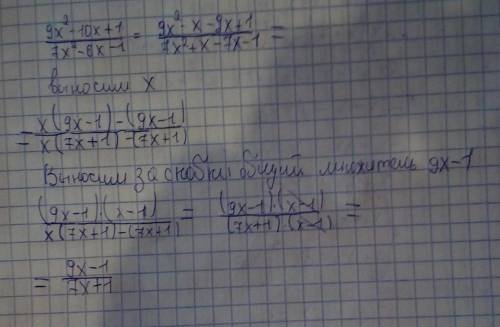 (9x²-10x+1)/(7x²-6x-1) = (9x²-x-9x+1)/(7x²+x-7x-1) =
выносим x
= (x(9x-1)-(9x-1))/(x(7x+1)-(7x+1))
Выносим за скобки общий множитель 9x-1
((9x-1)·(x-1))/(x(7x+1)-(7x+1)) = ((9x-1)·(x-1))/((7x+1)·(x-1)) =
= (9x-1)/(7x+1)